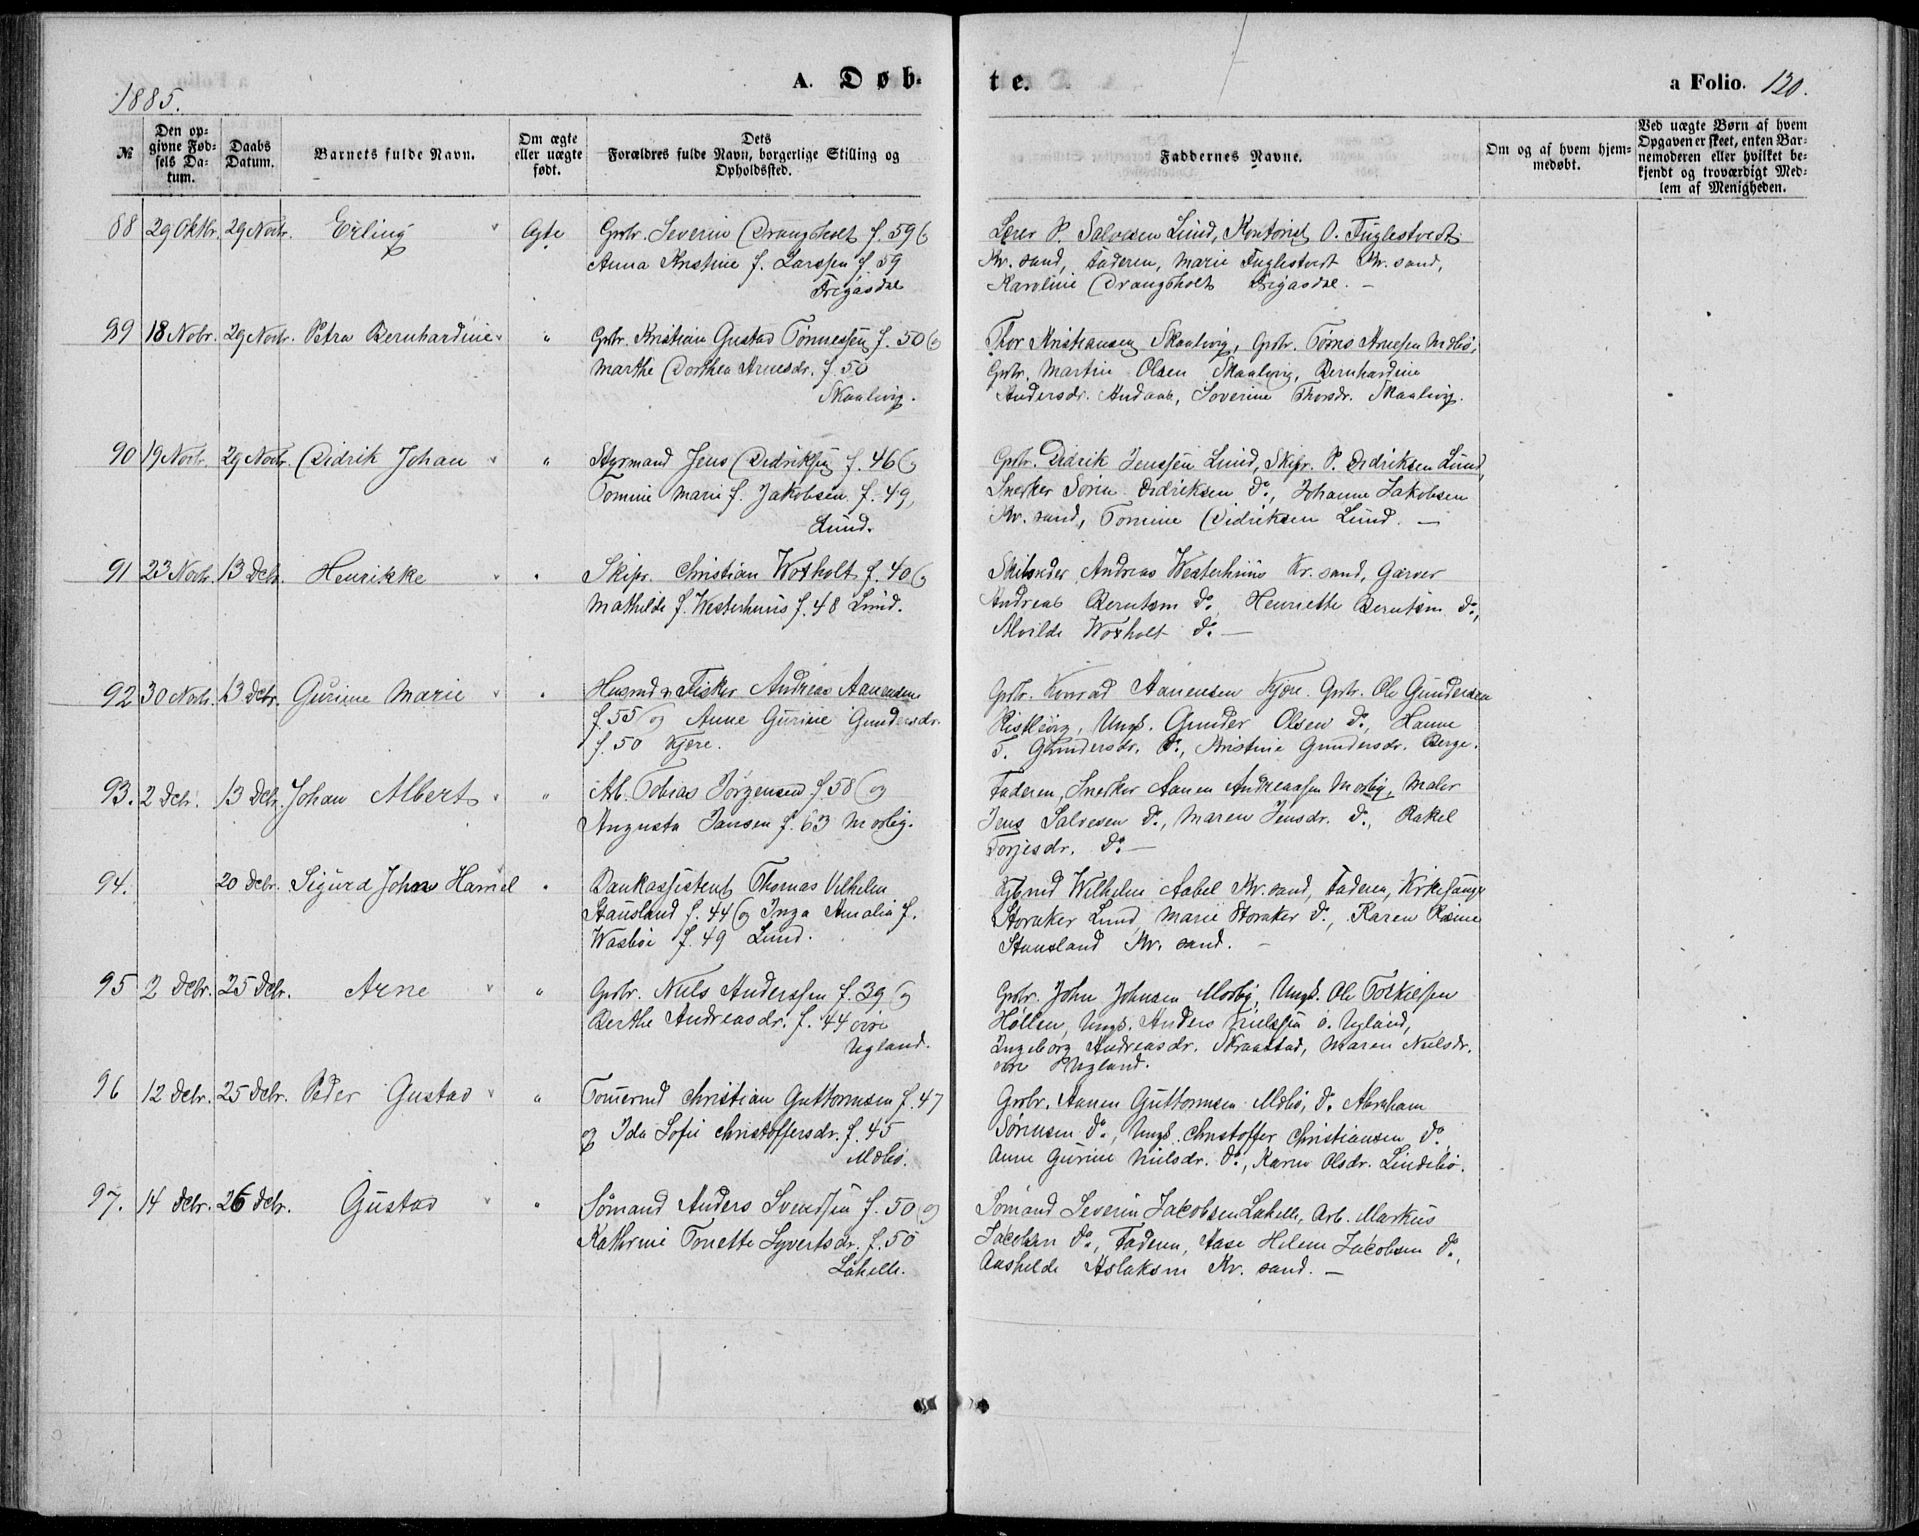 1885.
A. Døb-
te.
a Folio. 120.
№
Den op-
givne Fød-
sels Da-
tum.
Daabs
Datum.
Barnets fulde Navn.
Om ægte
eller uægte
født.
Dets
Forældres fulde Navn, borgerlige Stilling og
Opholdssted.
Faddernes Navne.
Om og af hvem hjem-
medøbt.
Ved uægte Børn af hvem
Opgaven er skeet, enten Bar-
nemoderen eller hvilket be-
kjendt og troværdigt Med-
lem af Menigheden.
88 29 Oktbr. 29 Novbr. Erling " Ægte
Grbr. Severin Drangsholt f. 59 og
Anna Kristine f. Larssen f. 59
Frigasdal
Lærer P. Salvesen Lund, Kontorist O. Fuglestvedt
Kr. sand, Faderen, Marie Fuglestvedt Kr. sand,
Karoline Drangsholt Frigasdal. —
89 18 Nobr. 29 Novbr. Petra Bernhardine " "
Grbr. Kristian Gustav Tønnessen f. 50 og
Marthe Dorthea Arnesdr. f. 50
Skaalevig.
Thor Kristiansen Skaalvig, Grbr. Tørres Arnesen Mebø,
Grbr. Martin Olsen Skaalvig, Bernhardine
Andersdr. Andaas, Soverine Thorsdr. Skaalvig.
90 19 Novbr. 29 Novbr. Didrik Johan " "
Styrmand Jens Didriksen f. 46 og
Tomine Marie f. Jakobsen f. 49,
Lund.
Grbr. Didrik Jenssen Lund, Skipr. P. Didriksen Lund,
Snerker Søren Didriksen do., Johanne Jakobsen
Kr. sand, Tomine Didriksen Lund. —
91 23 Novbr. 13 Debr. Henrikke " "
Skipr. Christian Woxholt f. 40 og
Mathilde f. Westerhuus f. 48 Lund.
Andreas Westerhuus Kr. sand, Garver
Andreas Berntsen do. Henriette Berntsen do.,
Alvilde Woxholt do. —
92 30 Novbr. 13 Debr. Gurine Marie " "
Husmd. & Fisker Andreas Aanensen
f. 55 og Anne Gurine Gundersdr.
f. 50 Kjære.
Grbr. Konrad Aanensen Kjære. Grbr. Ole Gundersen
Ungk. Gunder Olsen do., Hanne
T. Gundersdr. do., Kristine Gundersdr. Berge.
93. 2 Debr. 13 Debr. Johan Albert " "
Ab. Tobias Jørgensen f. 58 og
Augusta Jansen f. 63 Mosbig.
Faderen, Snerker Aanen Andreassen Mosbig, Maler
Jens Salvesen do., Maren Jensdr. do., Rakel
Torjesdr. do. —
94. 20 Debr. Sigurd John Harriel "
Bankassistent Thomas Vilhelm
Stausland f. 44 og Inga Amalia f.
Wasbøe f. 49 Lund.
Kjbmd Wilhelm Aabel Kr. sand, Faderen, Kirkesanger
Storaker Lund, Marie Storaker do., Karen Rosine
Stausland Kr. sand. —
95 2 Debr. 25 Debr. Arne " "
Grbr. Niels Anderssen f. 39 og
Berthe Andreasdr. f. 44 øvre
Ugland.
Grbr. John Johnsen Mosby, Ungk. Ole Torkilsen
Høllen, Ungk. Anders Nielssen ø. Ugland,
Ingeborg Andreasdr. Straustad, Maren Nielsdr.
øvre Ugland.
96 12 Debr. 25 Debr. Peder Gustav " "
Tømermd Christian Guttormsen f. 47
og Ida Sofie Christoffersdr. f. 45
Mebø.
Grbr. Aanen Guttormsen Mebø, do. Abraham
Sørensen do., Ungk. Christoffer Christiansen do.
Anne Gurine Nielsdr. do., Karen Olsdr. Lindebø.
97. 14 Debr. 26 Debr. Gustav " "
Sømand Anders Svendsen f. 50 og
Kathrine Tonette Syvertsdr. f. 50
Lahelle.
Sømand Severin Jacobsen Lahelle, Arb. Markus
Jacobsen do., Faderen, Aase Helene Jacobsen do.,
Aashilde Aslaksen Kr. sand. —